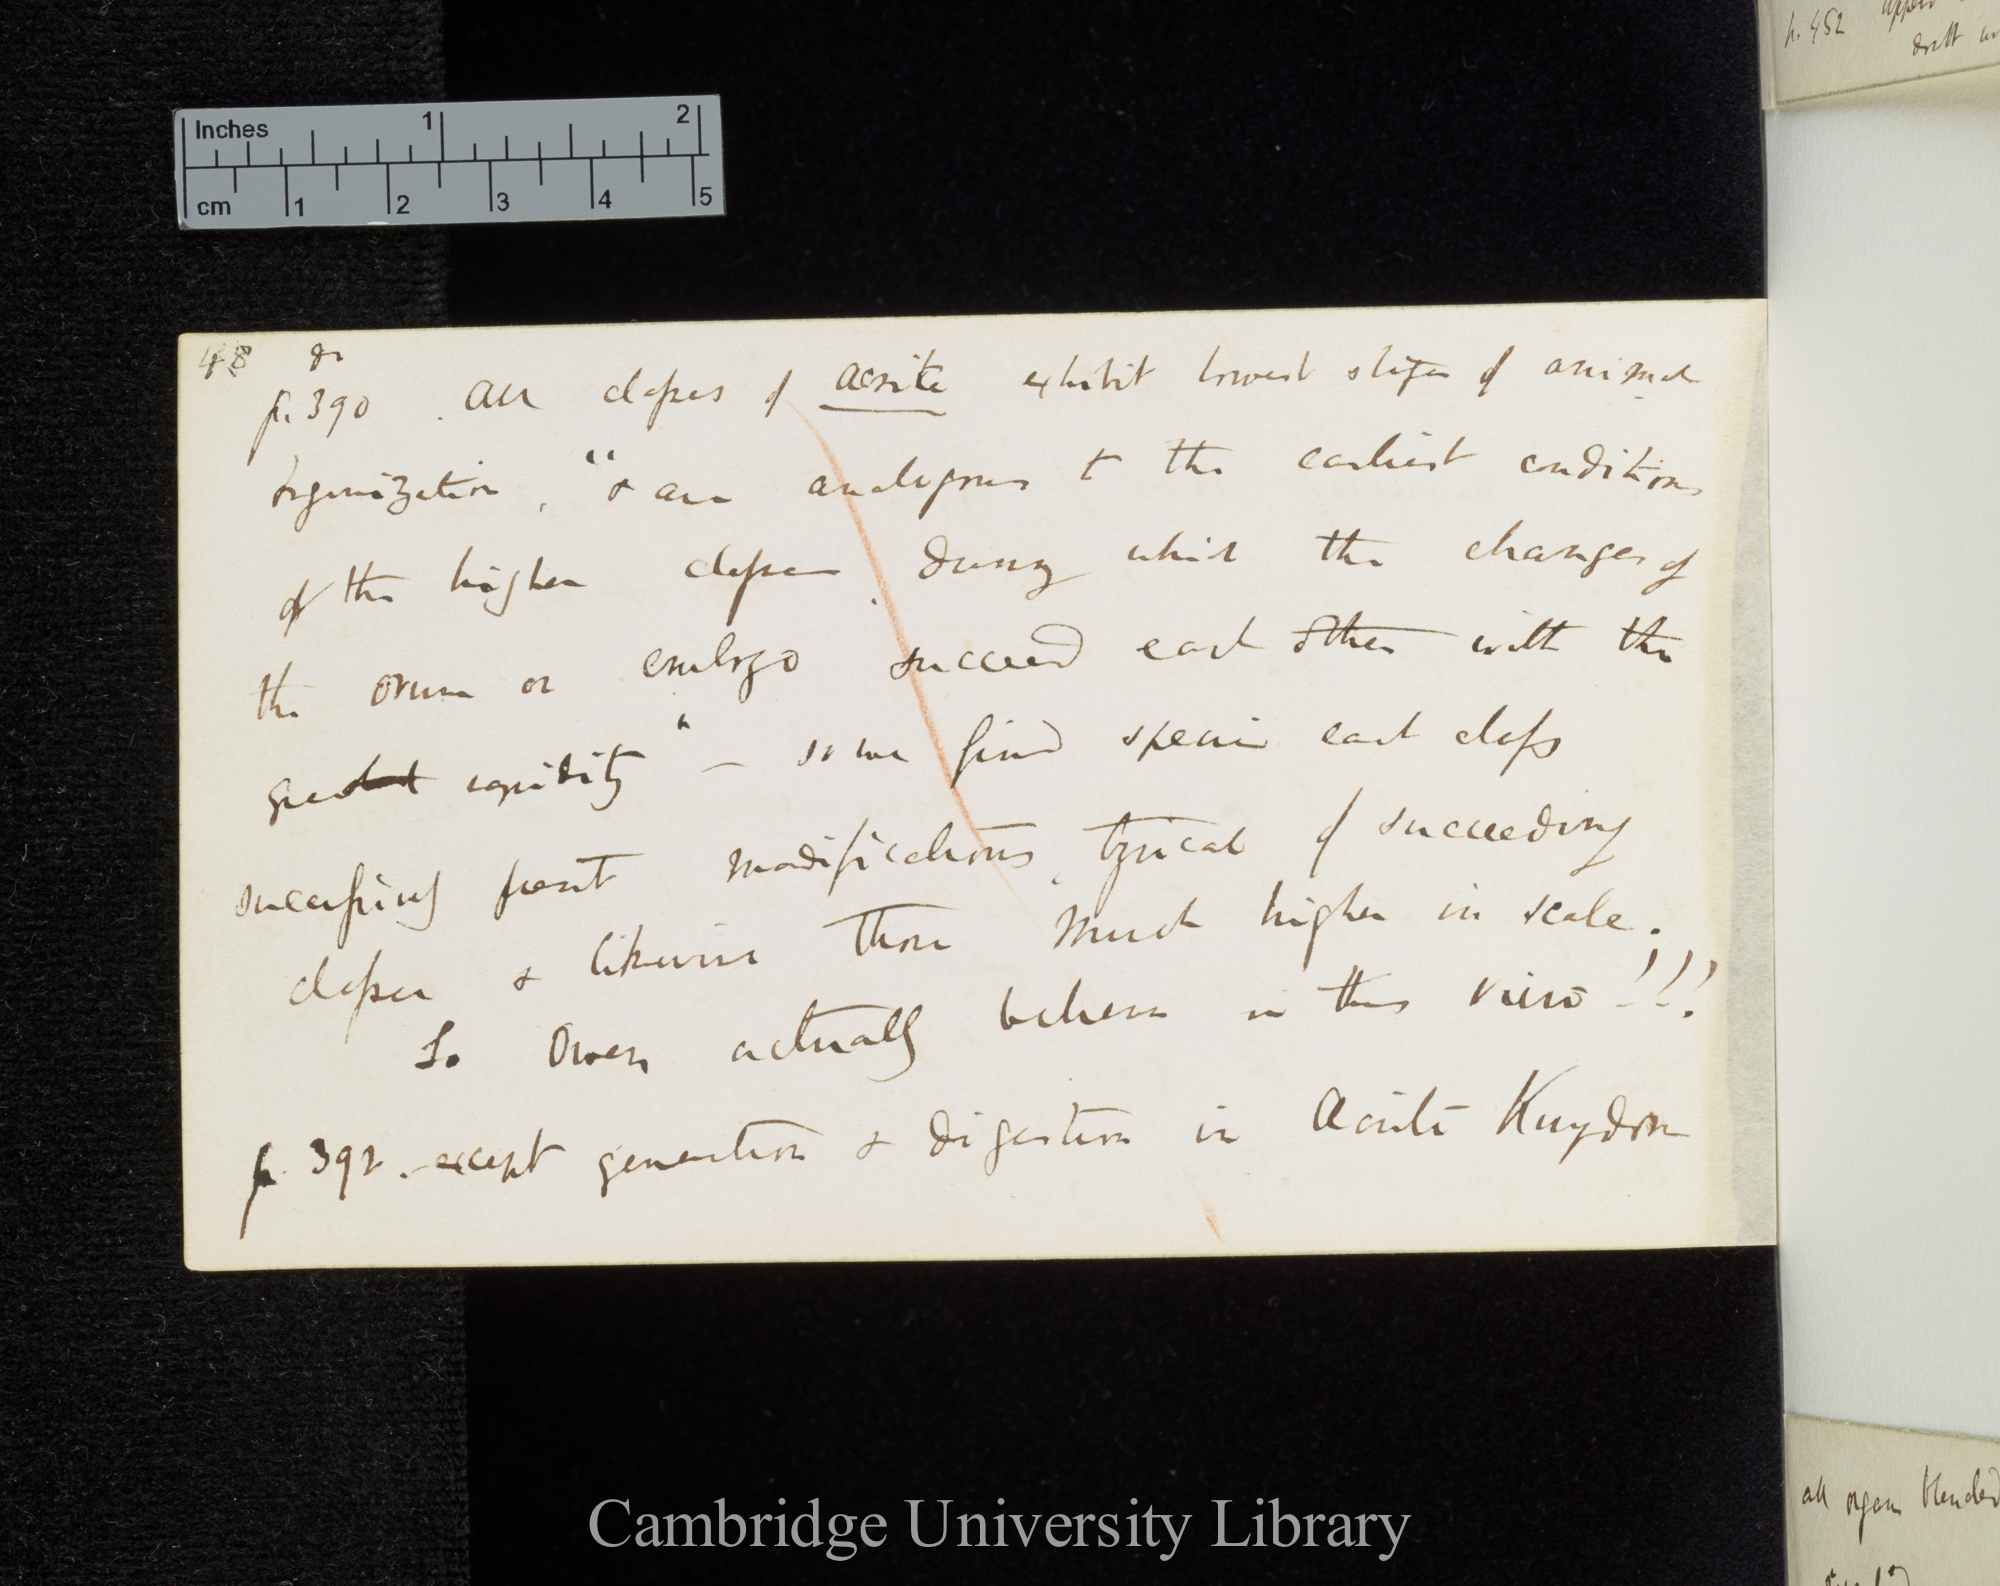 Inches 1 2
cm 1 2 3 4 5
p. 452
48 do
p. 390. All classes of acrite exhibit lowest stages of animal
organization, "& are analogous to the earliest conditions
of the higher classes, during which the changes of
the ovum or embryo succeed each other with the
greatest rapidity" — so we find species each class
successively present modifications, typical of succeeding
classes & likewise those much higher in scale.
So Owen actually believes in this view!!!
p. 392. except generation & digestion in Acrite Kingdom
all organs blended
Cambridge University Library